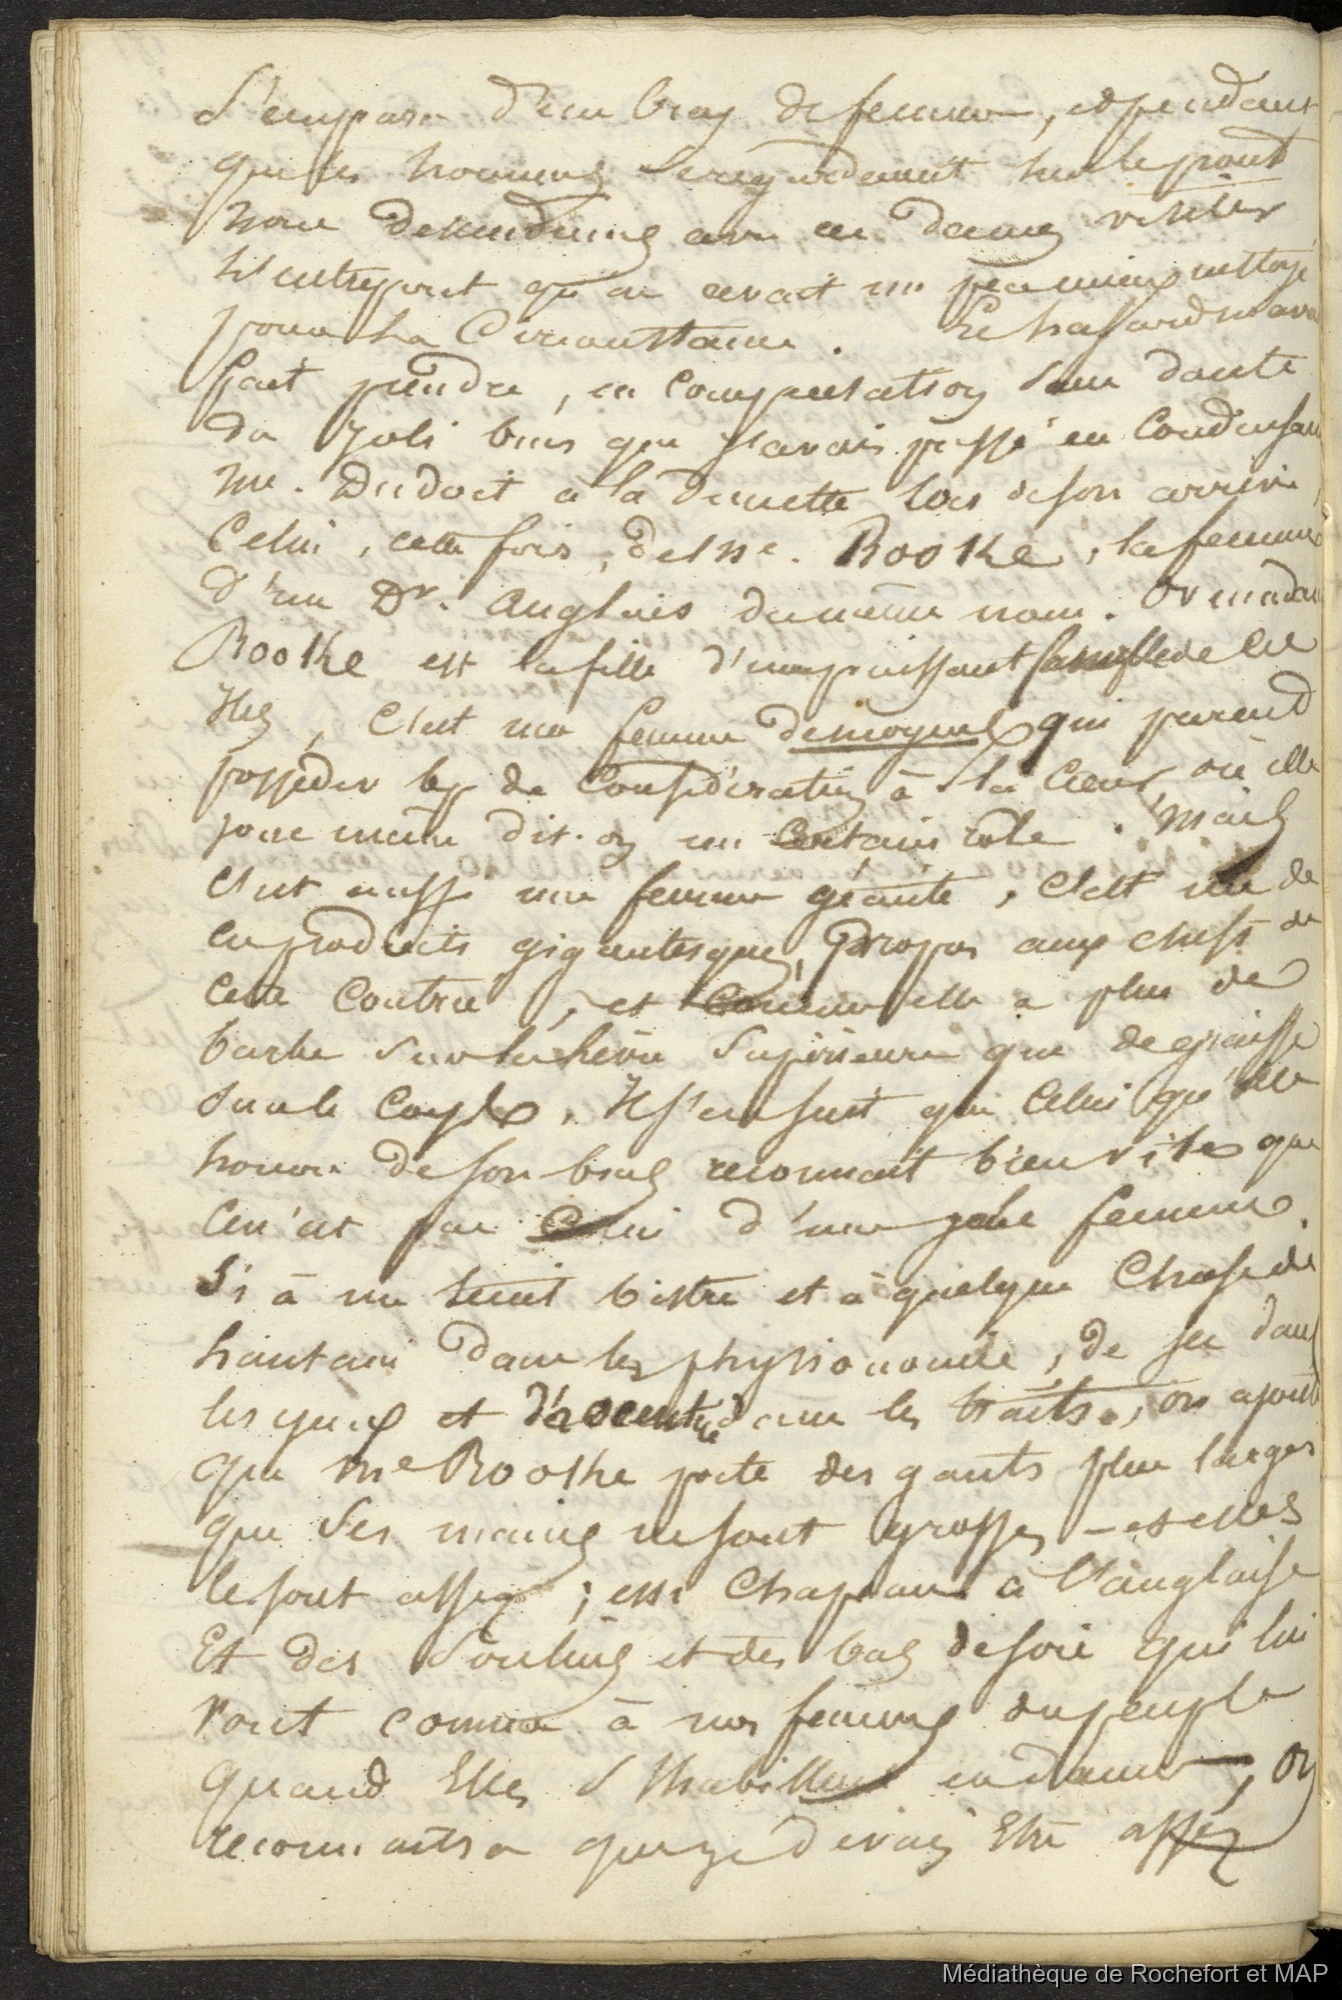 S'empara d'un bras de femme, et pendant
que les hommes se regardaient sur le pont
nous descendimes avec ces dames visiter
l'entrepont qu'on avait un peu mieux nettoyé
pour la Circonstance. Le hasard m'avait
fait prendre, en compensation sans doute
du joli bras que j'avais pressé en Conduisant
me. Dudoit à la Dunette lors de son arrivée,
Celui, cette fois, de Me. Rooke, la femme
d'un Dr. Anglais du même nom. Or madame
Rooke est la fille d'une puissant famille de ces
Iles, C'est une femme de moyens qui parend
posséder de Considération à la Cour, où elle
joue même dit-on un Certain rôle. Mais
C'est aussi une femme géante, C'est un de
ces produits gigantesques, propres aux chefs de
cette Contrée, et Comme elle a plus de
barbe sur la lèvre supérieure que de graisse
sur le Corps, Il s'en suit que Celui qu'elle
honore de son bras reconnait bien vite que
Ce n'est pas Celui d'une jolie femme.
Si à un teint bistre et à quelque Chose de
hautain dans la physionomie, de feu dans
les yeux et d'accentué dans les traits, on ajoute
que Me Rooke porte des gants plus larges
que Ses mains ne sont grosses – et elles
le sont assez; un Chapeau à l'anglaise
Et des Souliers et des bas de soie qui lui
vont comme à nos femmes du peuple
quand Elles S'habillent en dames, on
reconnaitra que je devais Etre assez
Médiathèque de Rochefort et MAP